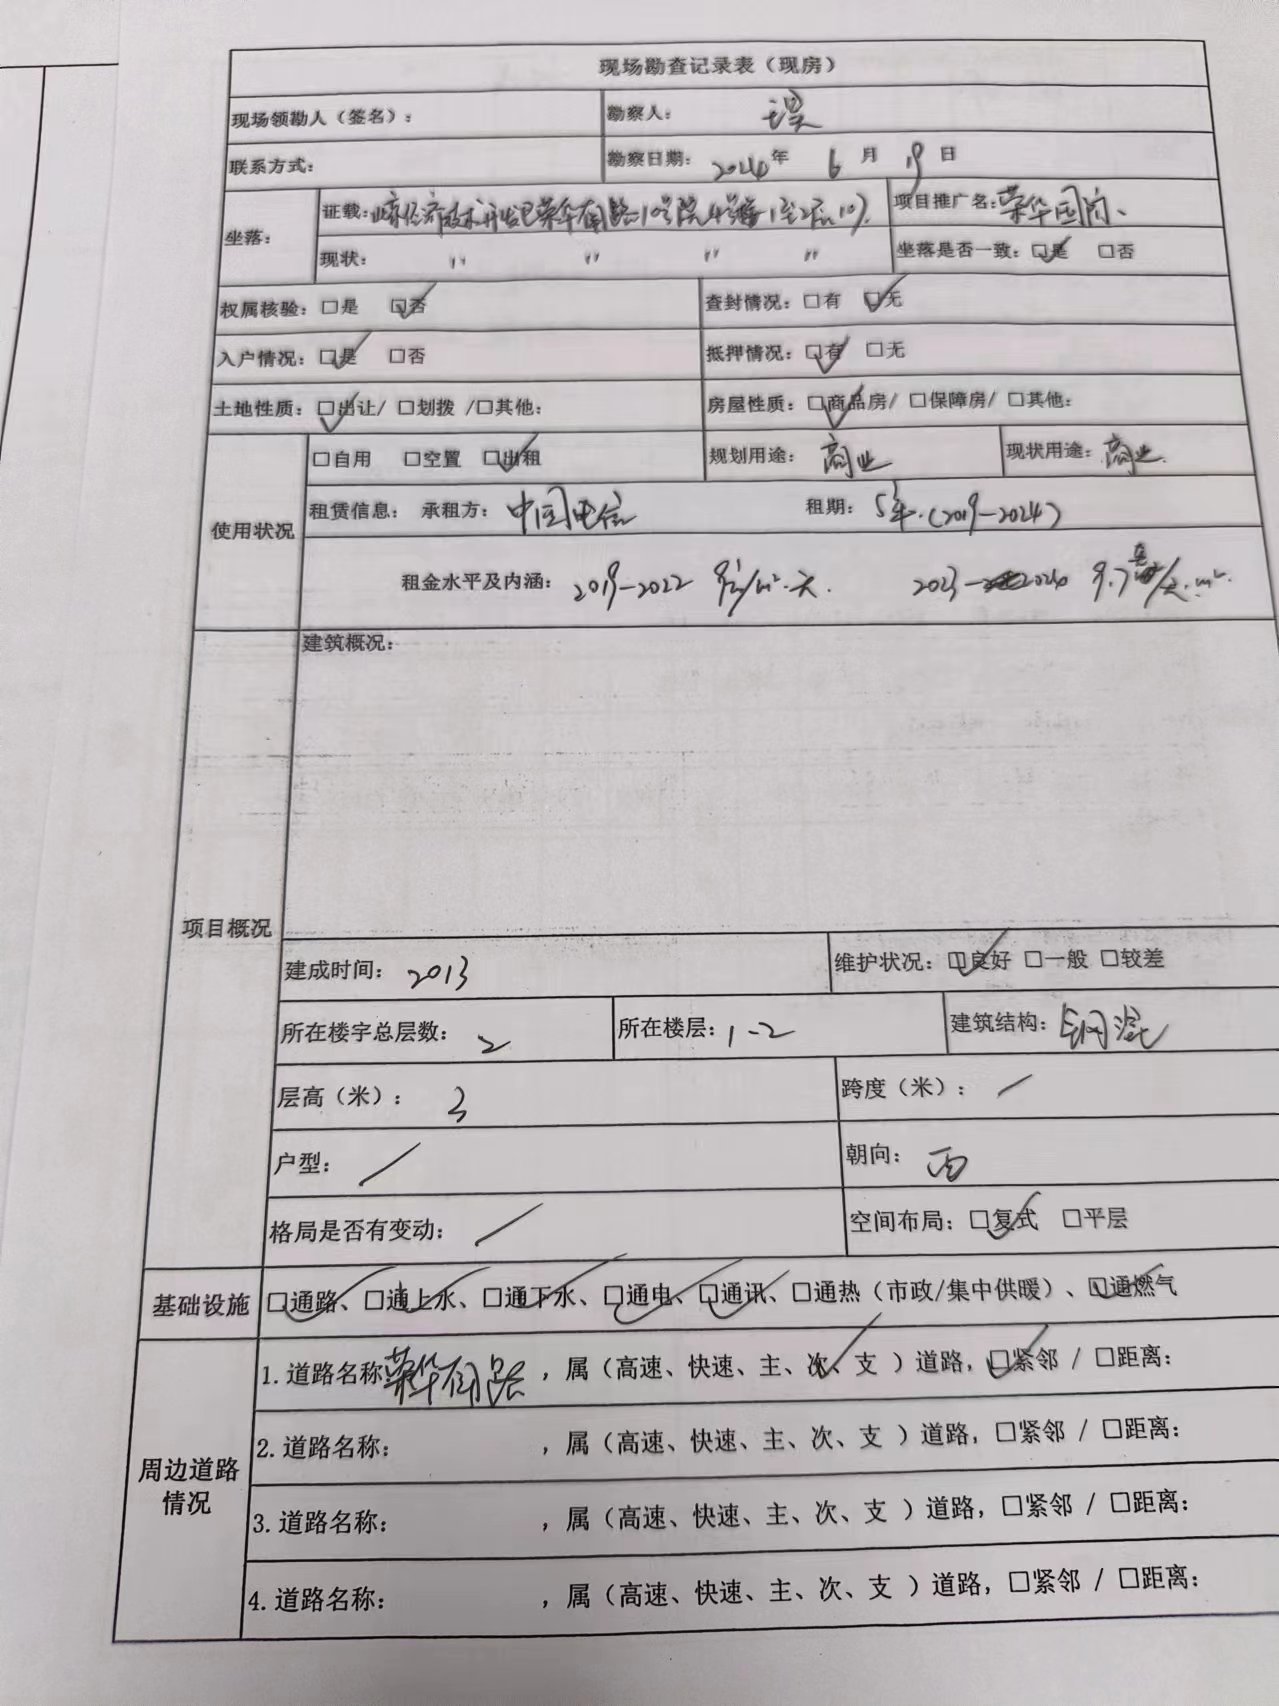 现场勘查记录表（现房）
现场领勘人（签名）： 勘察人：
联系方式： 勘察日期：2024年 6月 19日
坐落： 证载：经济技术开发区荣华南路10号院4号楼1至2层101. 项目推广名：荣华国际、
现状： 〃 〃 〃 〃 坐落是否一致：☑是 □否
权属核验：□是 ☑否 查封情况：□有 ☑无
入户情况：☑是 □否 抵押情况：☑有 □无
土地性质：☑出让/ □划拨 /□其他： 房屋性质：☑商品房/ □保障房/ □其他：
使用状况 □自用 □空置 ☑出租 规划用途：商业 现状用途：商业.
租赁信息： 承租方：中国电信 租期：5年.(2019-2024)
租金水平及内涵：2019-2022 9元/m².天. 2023-2024 9.7元/天.m².
项目概况 建筑概况：
建成时间：2013 维护状况：☑良好 □一般 □较差
所在楼宇总层数：2 所在楼层：1-2 建筑结构：钢混
层高（米）：3 跨度（米）：/
户型：/ 朝向：西
格局是否有变动：/ 空间布局：☑复式 □平层
基础设施 ☑通路、☑通上水、☑通下水、☑通电、☑通讯、□通热（市政/集中供暖）、☑通燃气
周边道路情况 1.道路名称荣华南路，属（高速、快速、主、次✓、支 ）道路，☑紧邻 / □距离：
2.道路名称： ，属（高速、快速、主、次、支 ）道路，□紧邻 / □距离：
3.道路名称： ，属（高速、快速、主、次、支 ）道路，□紧邻 / □距离：
4.道路名称： ，属（高速、快速、主、次、支 ）道路，□紧邻 / □距离：